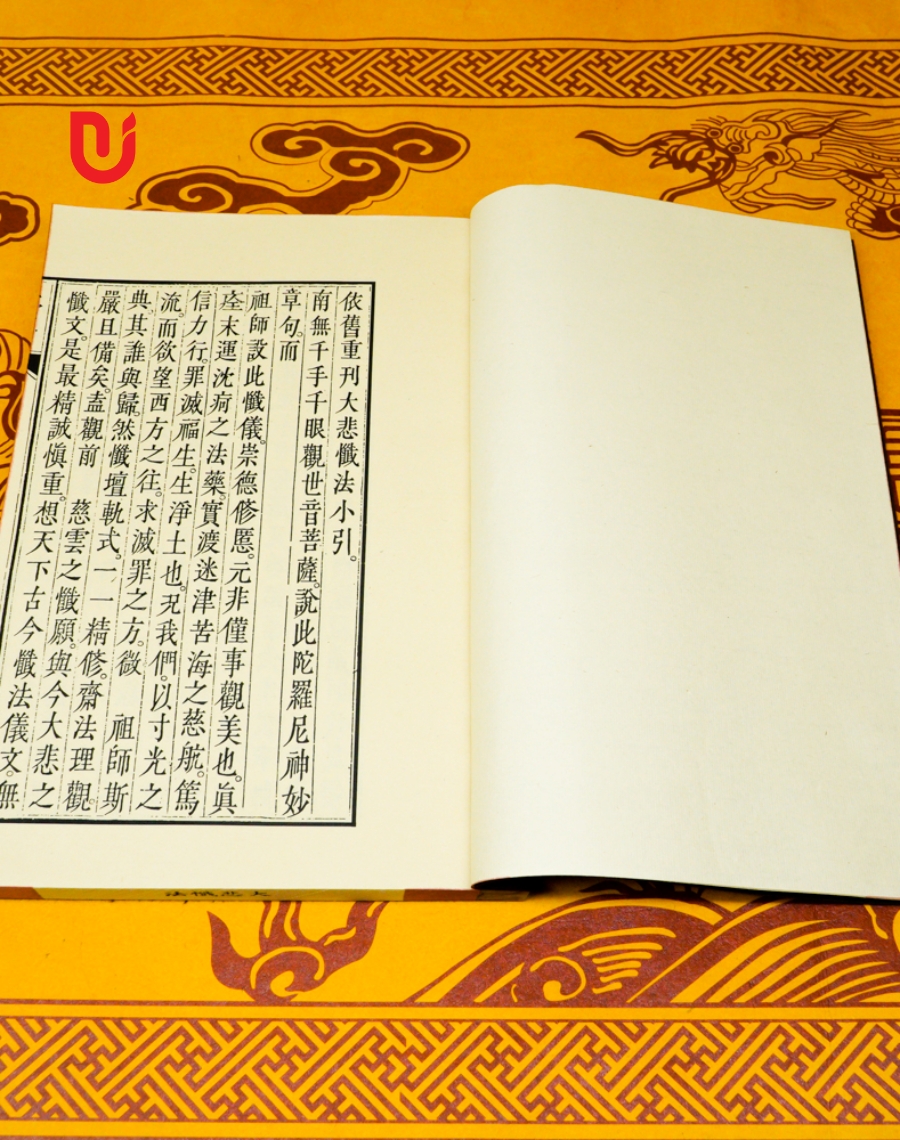 依舊重刊大悲懺法小引。
南無千手千眼觀世音菩薩。說此陀羅尼神妙
章句。而
祖師設此懺儀。崇德修慝。元非僅事觀美也。眞
痊末運沈疴之法藥。實渡迷津苦海之慈航。篤
信力行。罪滅福生。生淨土也。況我們。以寸光之
流。而欲望西方之往。求滅罪之方。微 祖師斯
典。其誰與歸。然懺壇軌式。一一精修。齋法理觀。
嚴且備矣。盍觀前 慈雲之懺願。與今大悲之
懺文。是最精誠愼重。想天下古今懺法儀文。無
大悲懺法